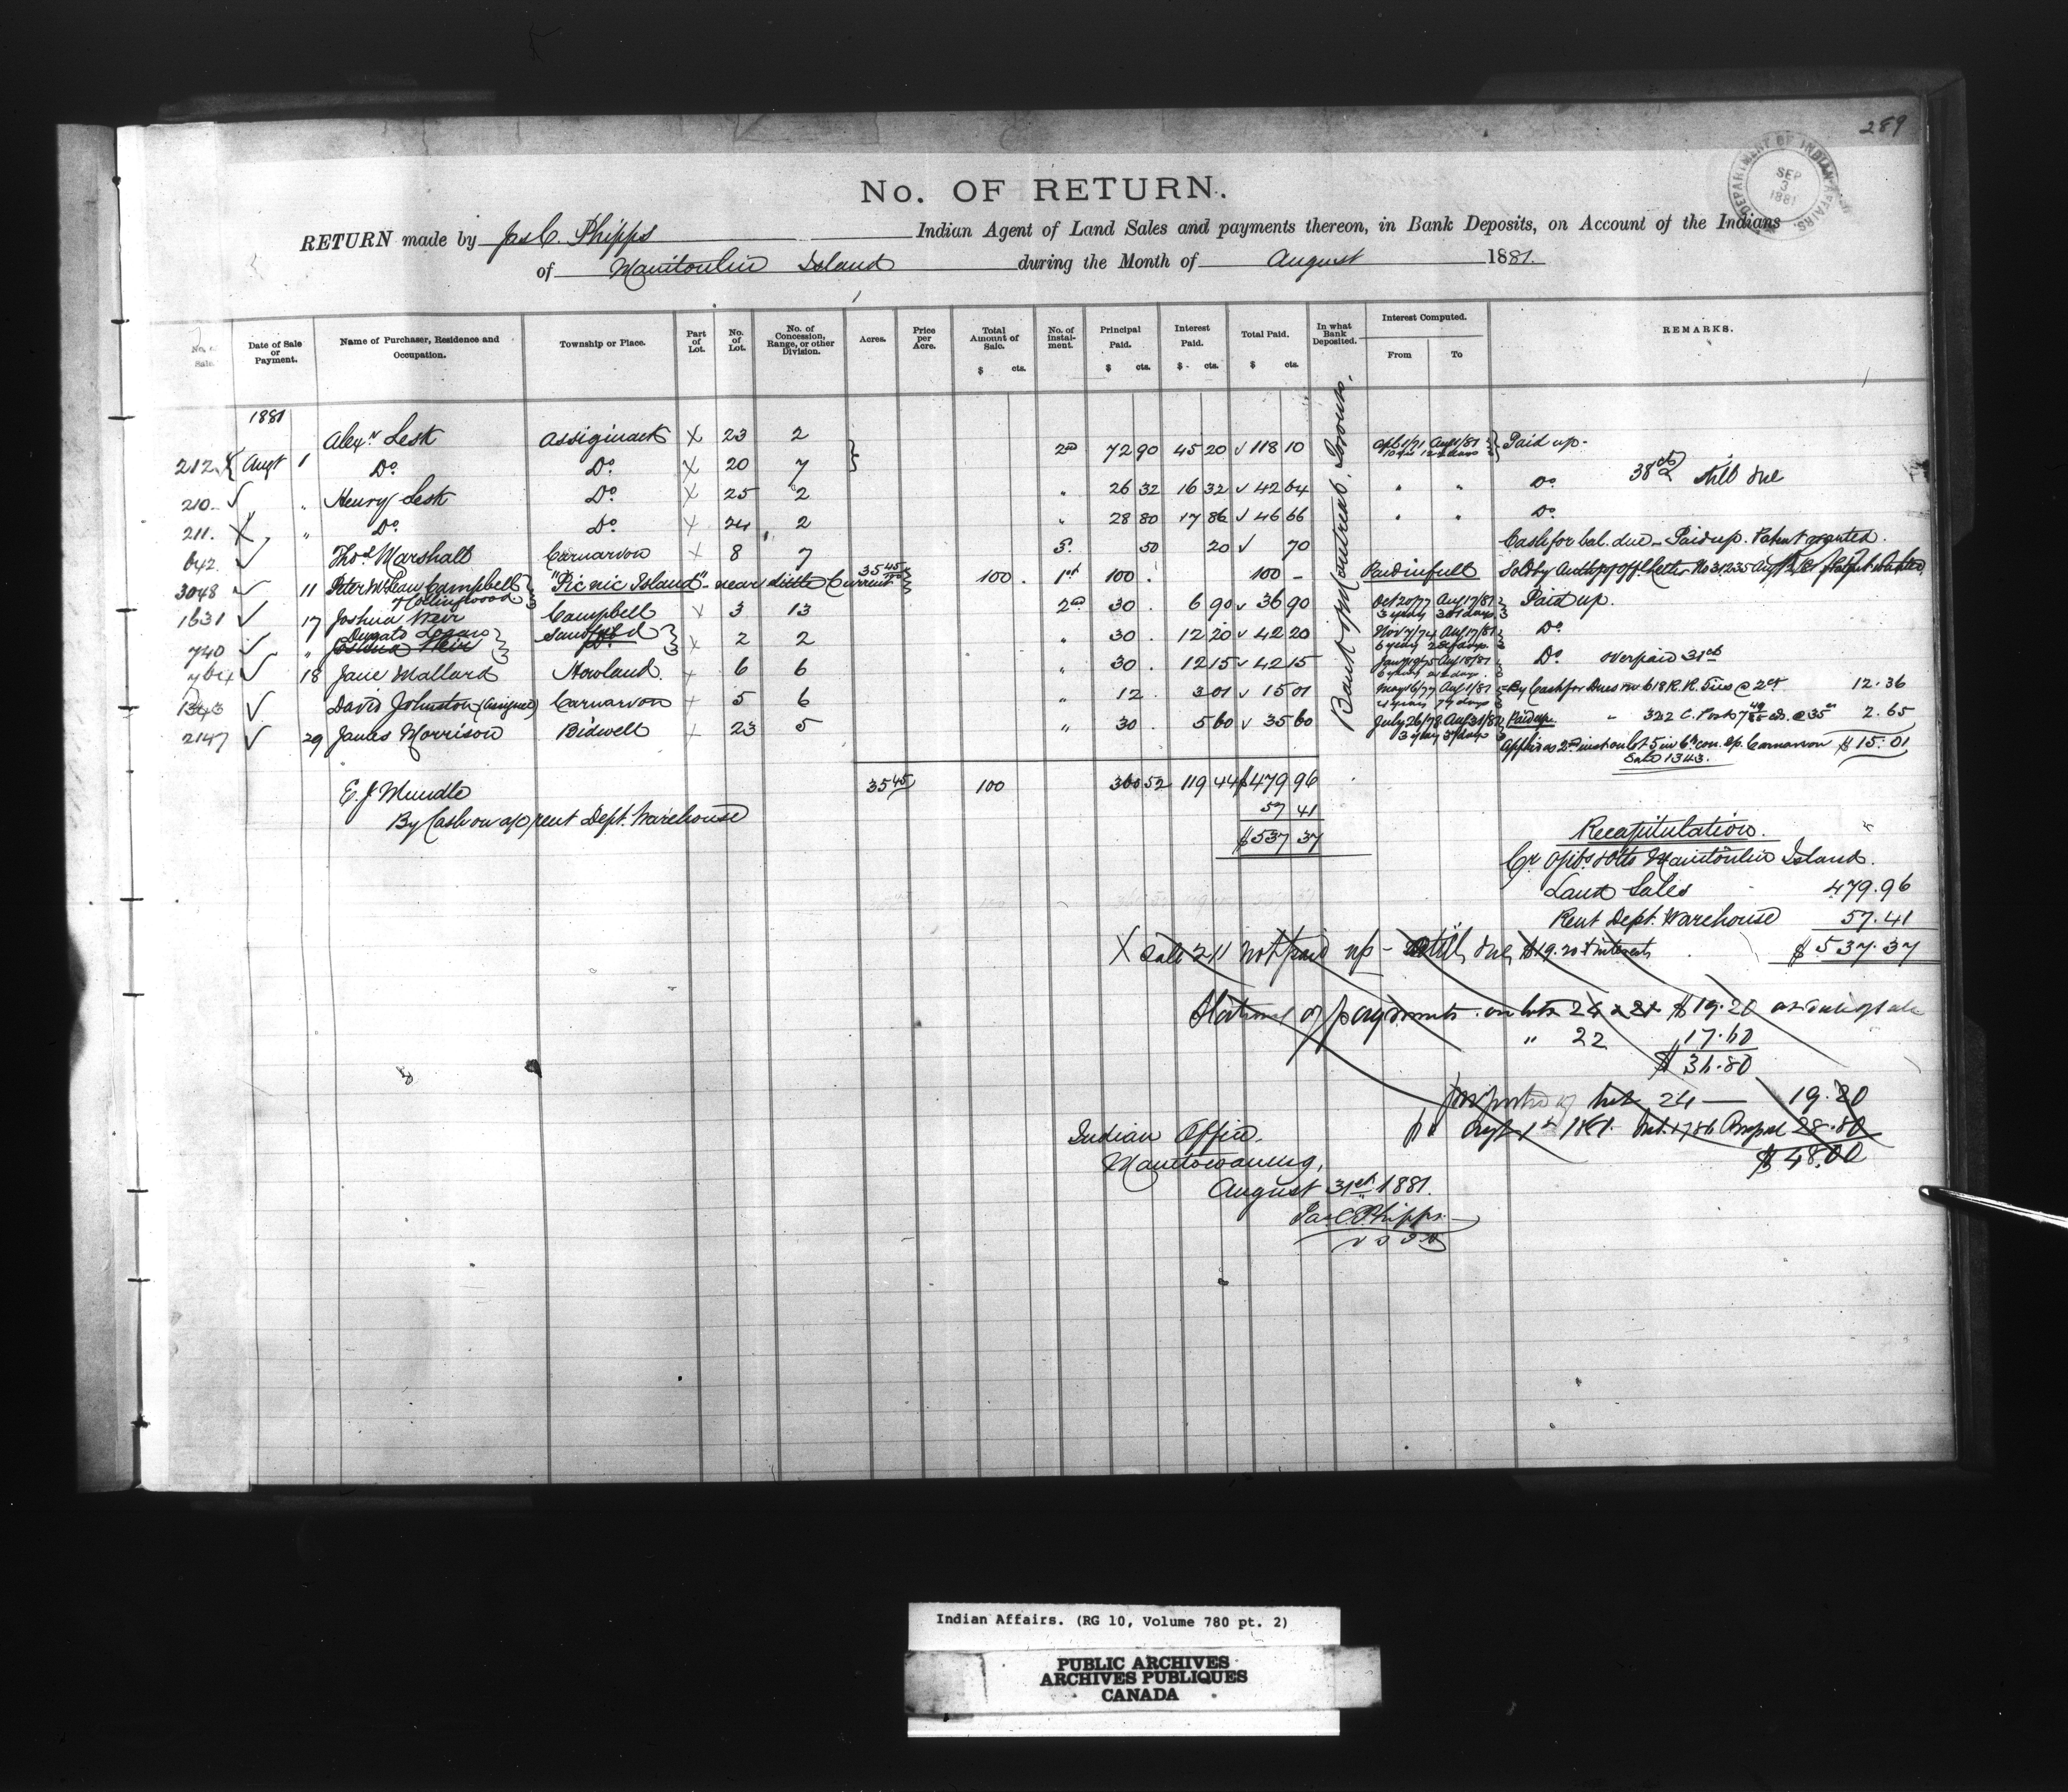 289
DEPARTMENT OF INDIAN AFFAIRS. SEP 3 1881
No. OF RETURN.
RETURN made by Jas C. Phipps Indian Agent of Land Sales and payments thereon, in Bank Deposits, on Account of the Indians
of Manitoulin Island during the Month of August 1881.
No. of Sale. Date of Sale or Payment. Name of Purchaser, Residence and Occupation. Township or Place. Part of Lot. No. of Lot. No. of Concession, Range, or other Division. Acres. Price per Acre. Total Amount of Sale. $ cts. No. of Instalment. Principal Paid. $ cts. Interest Paid. $ cts. Total Paid. $ cts. In what Bank Deposited. Interest Computed. From To REMARKS.
Bank of Montreal. Toronto.
1881
212 Augt 1 Alexr Lesk Assiginack X 23 2 2nd 72 90 45 20 √ 118 10 Paid up.
Do Do X 20 7
210 √ " Henry Lesk Do X 25 2 " 26 32 16 32 √ 42 64 " " Do 38 cts still due
211 X " Do Do X 24 2 " 28 80 17 86 √ 46 66 " " Do
642 √ Thos Marshall Carnarvon X 8 7 5 50 20 √ 70 Cash for bal. due - Paid up. Patent granted.
3048 √ 11 Peter McLean Campbell Collingwood "Picnic Island" - near Little Current 35 45 100 . 1st 100 . 100 - Paid in full Sold by Auth of Letter No 31235
1631 √ 17 Joshua Weir Campbell X 3 13 2nd 30 . 6 90 √ 36 90 Oct 20/77 Aug 17/81 3 years 301 days Paid up.
740 √ " Joshua Weir Sandfield Do X 2 2 " 30 . 12 20 √ 42 20 Nov 7/74 Aug 17/81 Do
764 √ 18 Jane Mallard Howland X 6 6 " 30 . 12 15 √ 42 15 Do overpaid 31 cts
1343 √ David Johnston (Assignee) Carnarvon X 5 6 " 12 . 3 01 √ 15 01 May 16/77 Aug 1/81 4 years 77 days By Cash for Dues on 618 R. R. Ties @ 2cts 12.36
2147 √ 29 James Morrison Bidwell X 23 5 " 30 5 60 √ 35 60 July 26/78 Aug 31/81 Paid up. " 322 C. Posts 2.65
Applies as 2nd inst on lot 5 in 6th con. Tp. Carnarvon $15.01
Sale 1343.
E. J. Mundle 35 45 100 360 52 119 44 $479 96
By Cash on a/c rent Dept. Warehouse 57 41
$537 37
Recapitulation.
Cr Ojibs & Otts Manitoulin Island.
Land Sales 479.96
Rent Dept. Warehouse 57.41
$537.37
X Sale 211 not paid up - still due $19.20 & interests
of payments on lots 24 & 21 $19.20 as date of sale
" 22 17.60
$36.80
proportion of lot 24 — 19.20
pd Augt 1st 1881. Int. 17.86 28.80
$48.00
Indian Office.
Manitowaning,
August 31st 1881.
Jas C. Phipps
V S I A
Indian Affairs. (RG 10, Volume 780 pt. 2)
PUBLIC ARCHIVES
ARCHIVES PUBLIQUES
CANADA